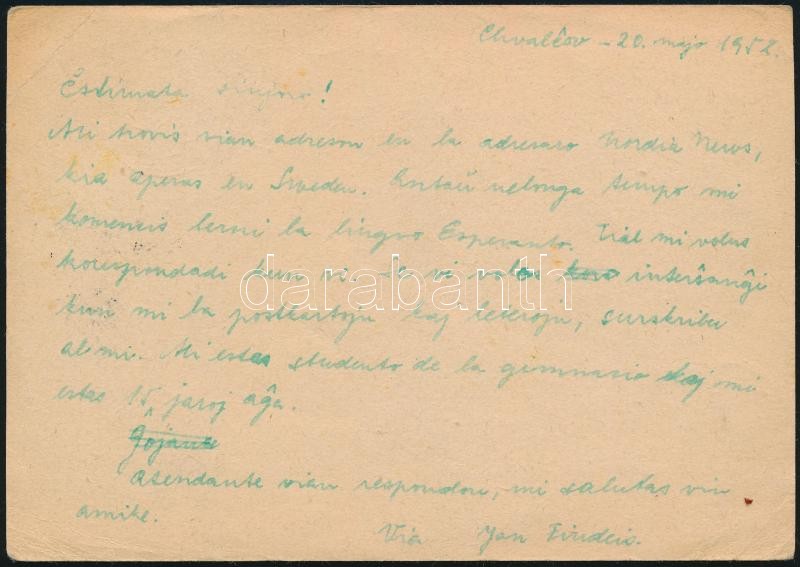 Chvalčov - 20. majo 1952.
Estimata sinjoro!
Mi trovis vian adreson en la adresaro Nordia News,
kia aperas en Sweden. Antaŭ nelonga tempo mi
komencis lerni la lingvo Esperanto. Tial mi volus
korespondadi kun vi. Se vi volas interŝanĝi
kun mi la postkartojn kaj leterojn, surskribu
al mi. Mi estas studento de la gimnazio kaj mi
estas 15 jaroj aĝa.
atendante vian respondon, mi salutas vin
amike.
Via Jan Findeis.
darabanth